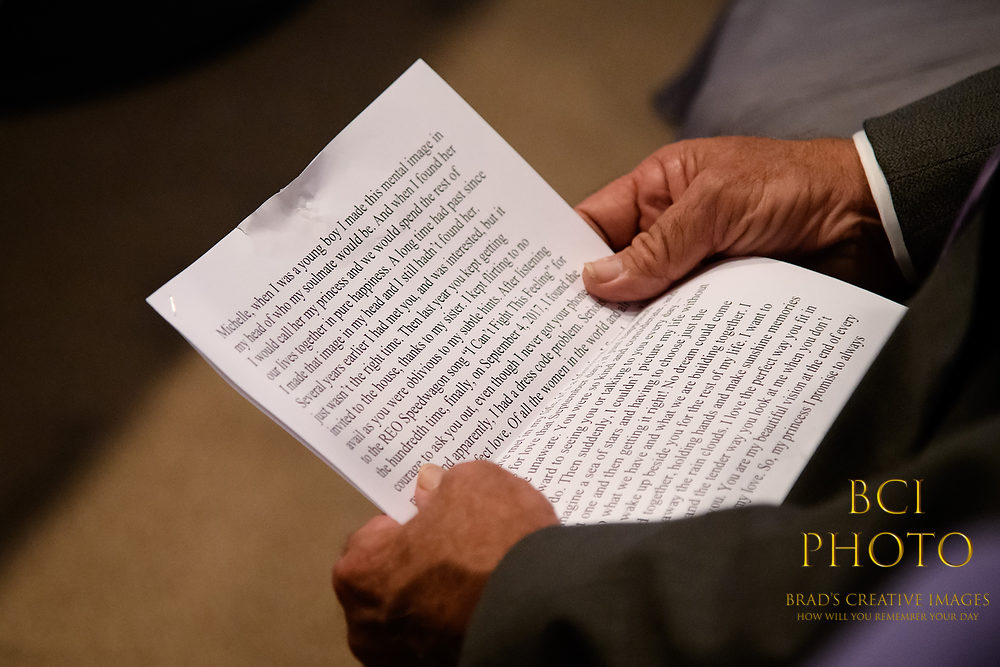 Michelle, when I was a young boy I made this mental image in
my head of who my soulmate would be. And when I found her
I would call her my princess and we would spend the rest of
our lives together in pure happiness. A long time had past since
I made that image in my head and I still hadn't found her.
Several years earlier I had met you, and was interested, but it
just wasn't the right time. Then last year you kept getting
invited to the house, thanks to my sister. I kept flirting to no
avail as you were oblivious to my subtle hints. After listening
to the REO Speedwagon song "I Can't Fight This Feeling" for
the hundredth time, finally, on September 4, 2017, I found the
courage to ask you out, even though I never got your phone
and apparently, I had a dress code problem. Serio
feel love. Of all the women in the world and
or love that
unaware. You were so kind and
ward to seeing you or talking to you every day.
do. Then suddenly, I couldn't picture my life without
magine a sea of stars and having to choose just the
t one and then getting it right! No dream could come
to what we have and what we are building together. I
wake up beside you for the rest of my life. I want to
d together, holding hands and make sunshine memories
away the rain clouds. I love the perfect way you fit in
and the tender way you look at me when you don't
ou. You are my beautiful vision at the end of every
my love. So, my princess I promise to always
BCI
PHOTO
BRAD'S CREATIVE IMAGES
HOW WILL YOU REMEMBER YOUR DAY